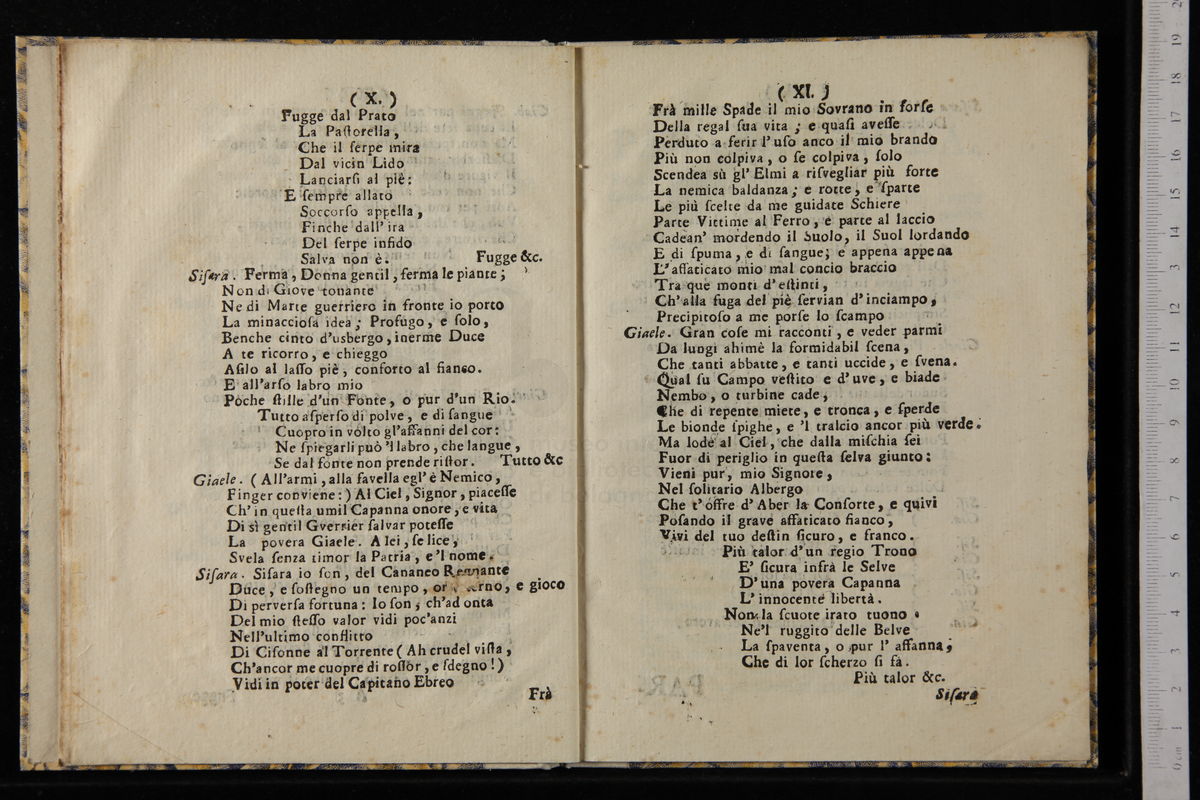 ( X. )
Fugge dal Prato
La Paſtorella,
Che il ſerpe mira
Dal vicin Lido
Lanciarſi al piè:
E ſempre allato
Soccorſo appella,
Finche dall' ira
Del ſerpe infido
Salva non è. Fugge &c.
Siſara. Ferma, Donna gentil, ferma le piante;
Non di Giove tonante
Ne di Marte guerriero in fronte io porto
La minaccioſa idea; Profugo, e ſolo,
Benche cinto d'usbergo, inerme Duce
A te ricorro, e chieggo
Aſilo al laſſo piè, conforto al fianco.
E all'arſo labro mio
Poche ſtille d'un Fonte, o pur d'un Rio.
Tutto aſperſo di polve, e di ſangue
Cuopro in volto gl'affanni del cor:
Ne ſpiegarli può 'l labro, che langue,
Se dal fonte non prende riſtor. Tutto &c
Giaele. (All'armi, alla favella egl' è Nemico,
Finger conviene:) Al Ciel, Signor, piaceſſe
Ch' in queſta umil Capanna onore, e vita
Di sì gentil Gverrier ſalvar poteſſe
La povera Giaele. A lei, ſe lice,
Svela ſenza timor la Patria, e 'l nome.
Siſara. Siſara io ſon, del Cananeo Regnante
Duce, e ſoſtegno un tempo, or ſcherno, e gioco
Di perverſa fortuna: Io ſon, ch'ad onta
Del mio ſteſſo valor vidi poc'anzi
Nell'ultimo conflitto
Di Ciſonne al Torrente (Ah crudel viſta,
Ch'ancor me cuopre di roſſor, e ſdegno!)
Vidi in poter del Capitano Ebreo
Frà
( XI. )
Frà mille Spade il mio Sovrano in forſe
Della regal ſua vita; e quaſi aveſſe
Perduto a ferir l' uſo anco il mio brando
Più non colpiva, o ſe colpiva, ſolo
Scendea sù gl' Elmi a riſvegliar più forte
La nemica baldanza; e rotte, e ſparte
Le più ſcelte da me guidate Schiere
Parte Vittime al Ferro, e parte al laccio
Cadean' mordendo il Suolo, il Suol lordando
E di ſpuma, e di ſangue; e appena appena
L' affaticato mio mal concio braccio
Tra que monti d' eſtinti,
Ch' alla fuga del piè ſervian d' inciampo,
Precipitoſo a me porſe lo ſcampo
Giaele. Gran coſe mi racconti, e veder parmi
Da lungi ahimè la formidabil ſcena,
Che tanti abbatte, e tanti uccide, e ſvena.
Qual ſu Campo veſtito e d' uve, e biade
Nembo, o turbine cade,
Che di repente miete, e tronca, e ſperde
Le bionde ſpighe, e 'l tralcio ancor più verde.
Ma lode al Ciel, che dalla miſchia ſei
Fuor di periglio in queſta ſelva giunto:
Vieni pur, mio Signore,
Nel ſolitario Albergo
Che t' offre d' Aber la Conſorte, e quivi
Poſando il grave affaticato fianco,
Vivi del tuo deſtin ſicuro, e franco.
Più talor d' un regio Trono
E' ſicura infrà le Selve
D' una povera Capanna
L' innocente libertà.
Non la ſcuote irato tuono
Ne'l ruggito delle Belve
La ſpaventa, o pur l' affanna;
Che di lor ſcherzo ſi fà.
Più talor &c.
Siſara